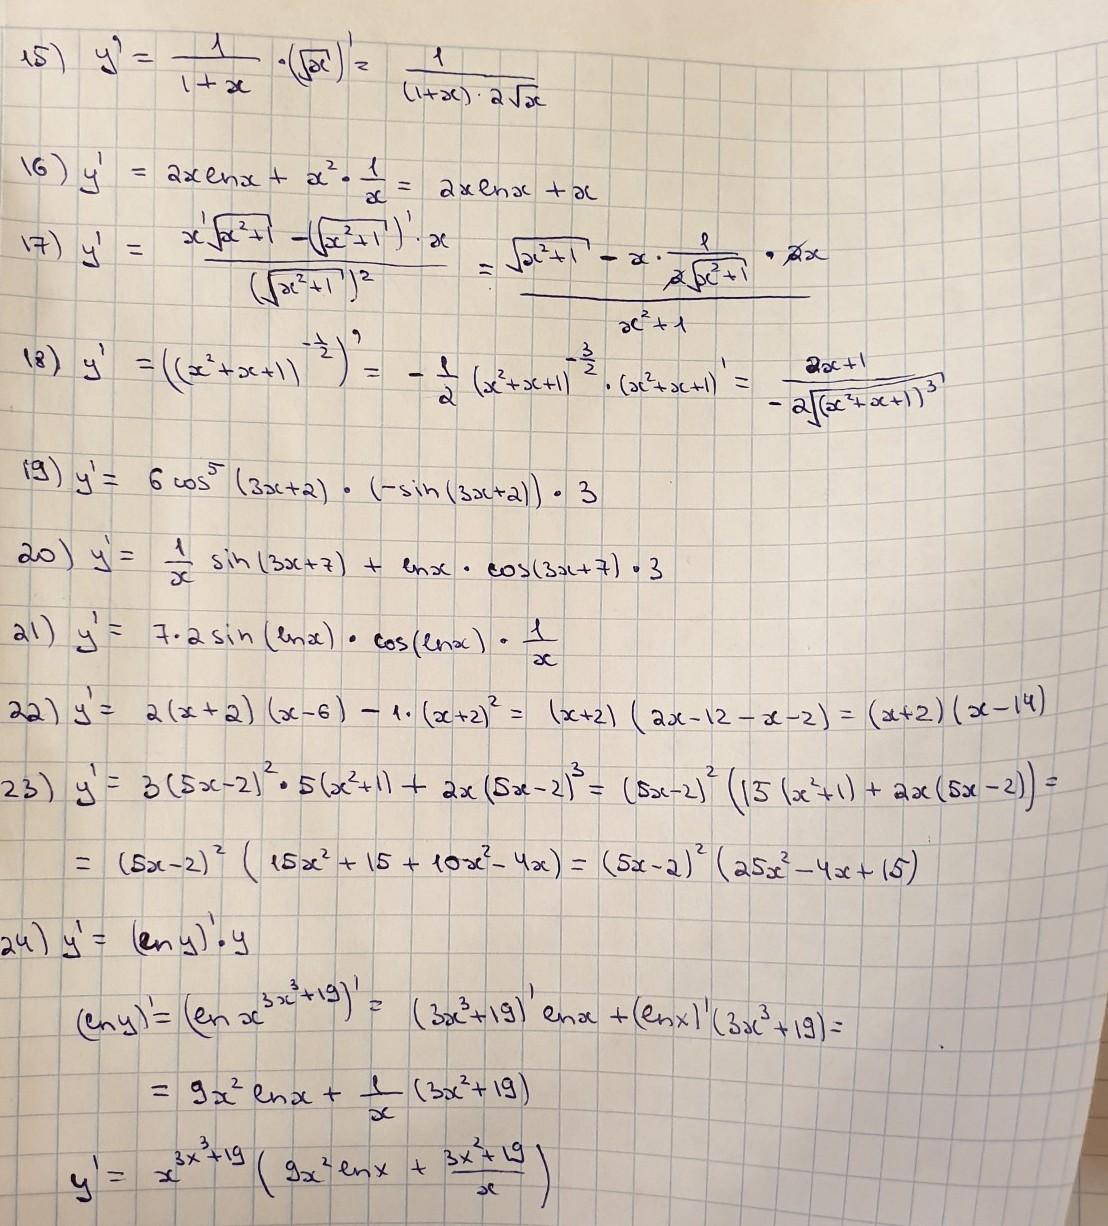 15) y' = 1/(1+x) · (√x)' = 1/((1+x) · 2√x)
16) y' = 2x ln x + x² · 1/x = 2x ln x + x
17) y' = (x'√(x²+1) - (√(x²+1))' · x)/(√(x²+1))² = (√(x²+1) - x · 1/(2√(x²+1)) · 2x)/(x²+1)
18) y' = ((x²+x+1)^(-1/2))' = -1/2 (x²+x+1)^(-3/2) · (x²+x+1)' = (2x+1)/(-2√((x²+x+1))³)
19) y' = 6 cos⁵ (3x+2) · (-sin(3x+2)) · 3
20) y' = 1/x sin(3x+7) + ln x · cos(3x+7) · 3
21) y' = 7·2 sin(ln x) · cos(ln x) · 1/x
22) y' = 2(x+2)(x-6) - 1·(x+2)² = (x+2)(2x-12-x-2) = (x+2)(x-14)
23) y' = 3(5x-2)² · 5(x²+1) + 2x(5x-2)³ = (5x-2)² (15(x²+1) + 2x(5x-2)) =
= (5x-2)² (15x² + 15 + 10x² - 4x) = (5x-2)² (25x² - 4x + 15)
24) y' = (ln y)' · y
(ln y)' = (ln x^(3x³+19))' = (3x³+19)' ln x + (ln x)' (3x³+19) =
= 9x² ln x + 1/x (3x²+19)
y' = x^(3x³+19) (9x² ln x + (3x²+19)/x)